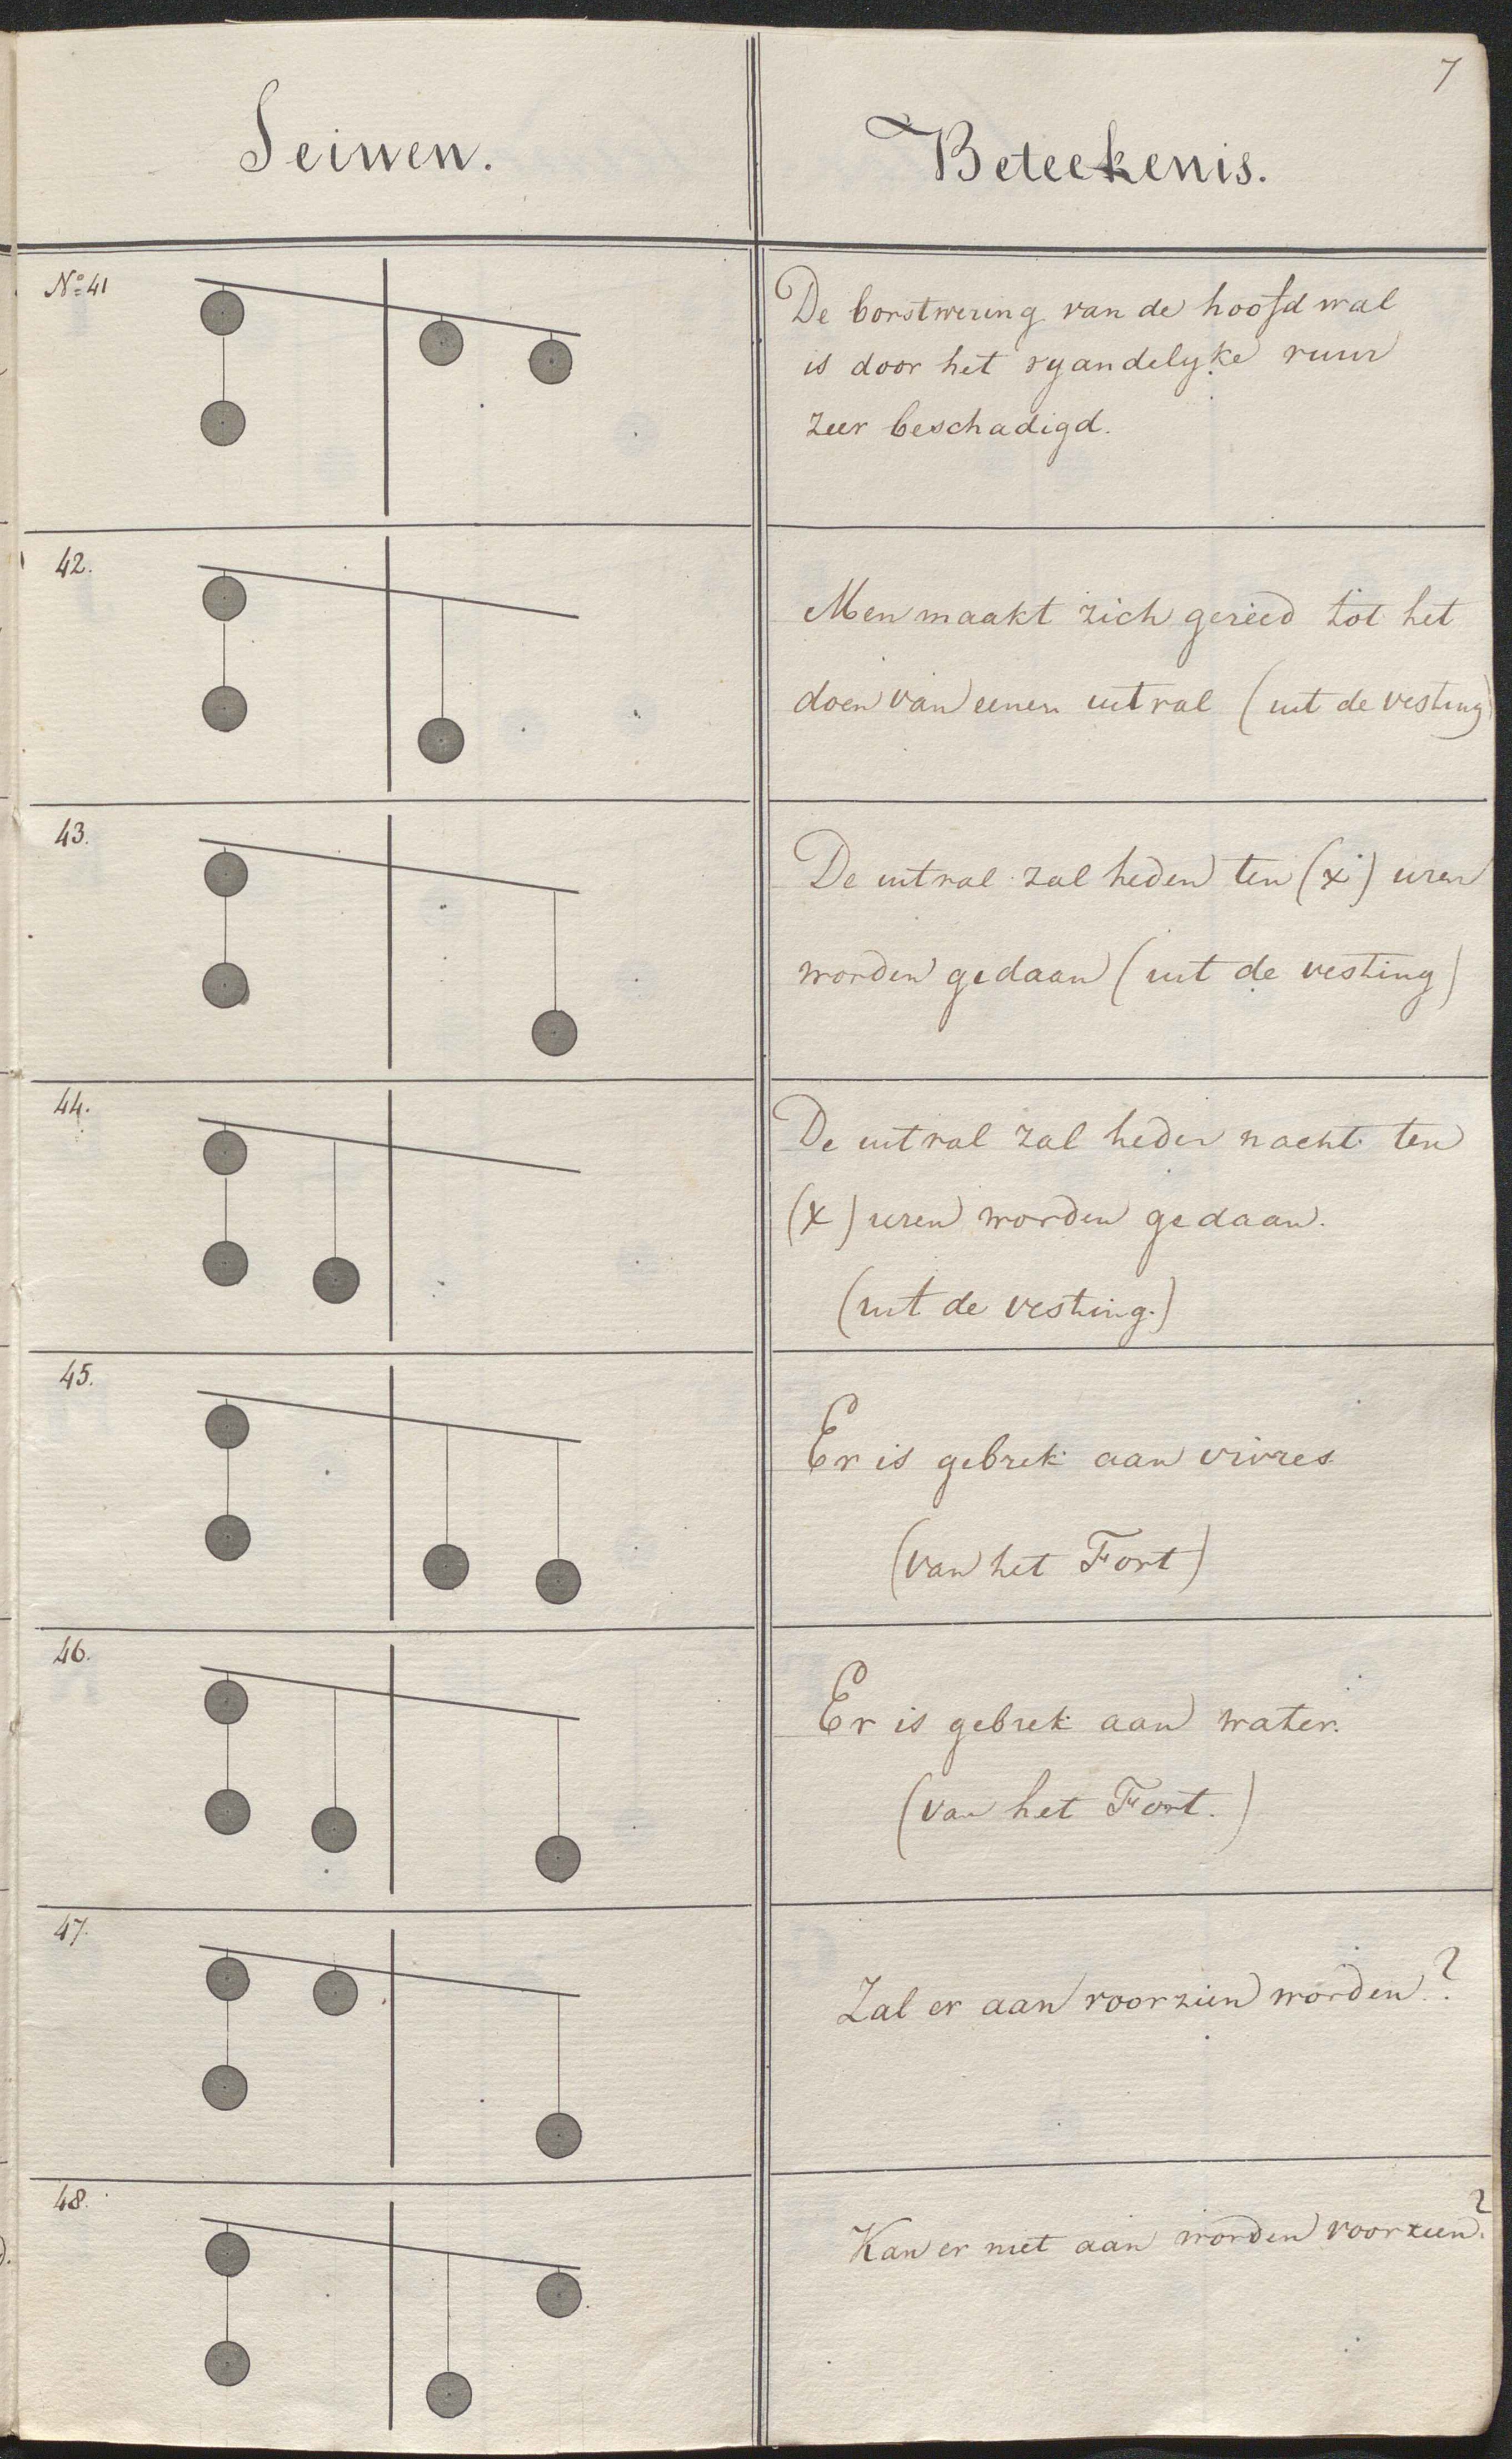 7
Seinen. Beteekenis.
No: 41
De borstwering van de hoofdwal
is door het vyandelyke vuur
zeer beschadigd.
42.
Men maakt zich gereed tot het
doen van eenen uitval (uit de vesting)
43.
De uitval zal heden ten (x) uren
worden gedaan (uit de vesting)
44.
De uitval zal heden nacht ten
(x) uren worden gedaan.
(uit de vesting.)
45.
Er is gebrek aan vivres.
(van het Fort)
46.
Er is gebrek aan water.
(van het Fort.)
47.
Zal er aan voorzien worden?
48.
Kan er niet aan worden voorzien?